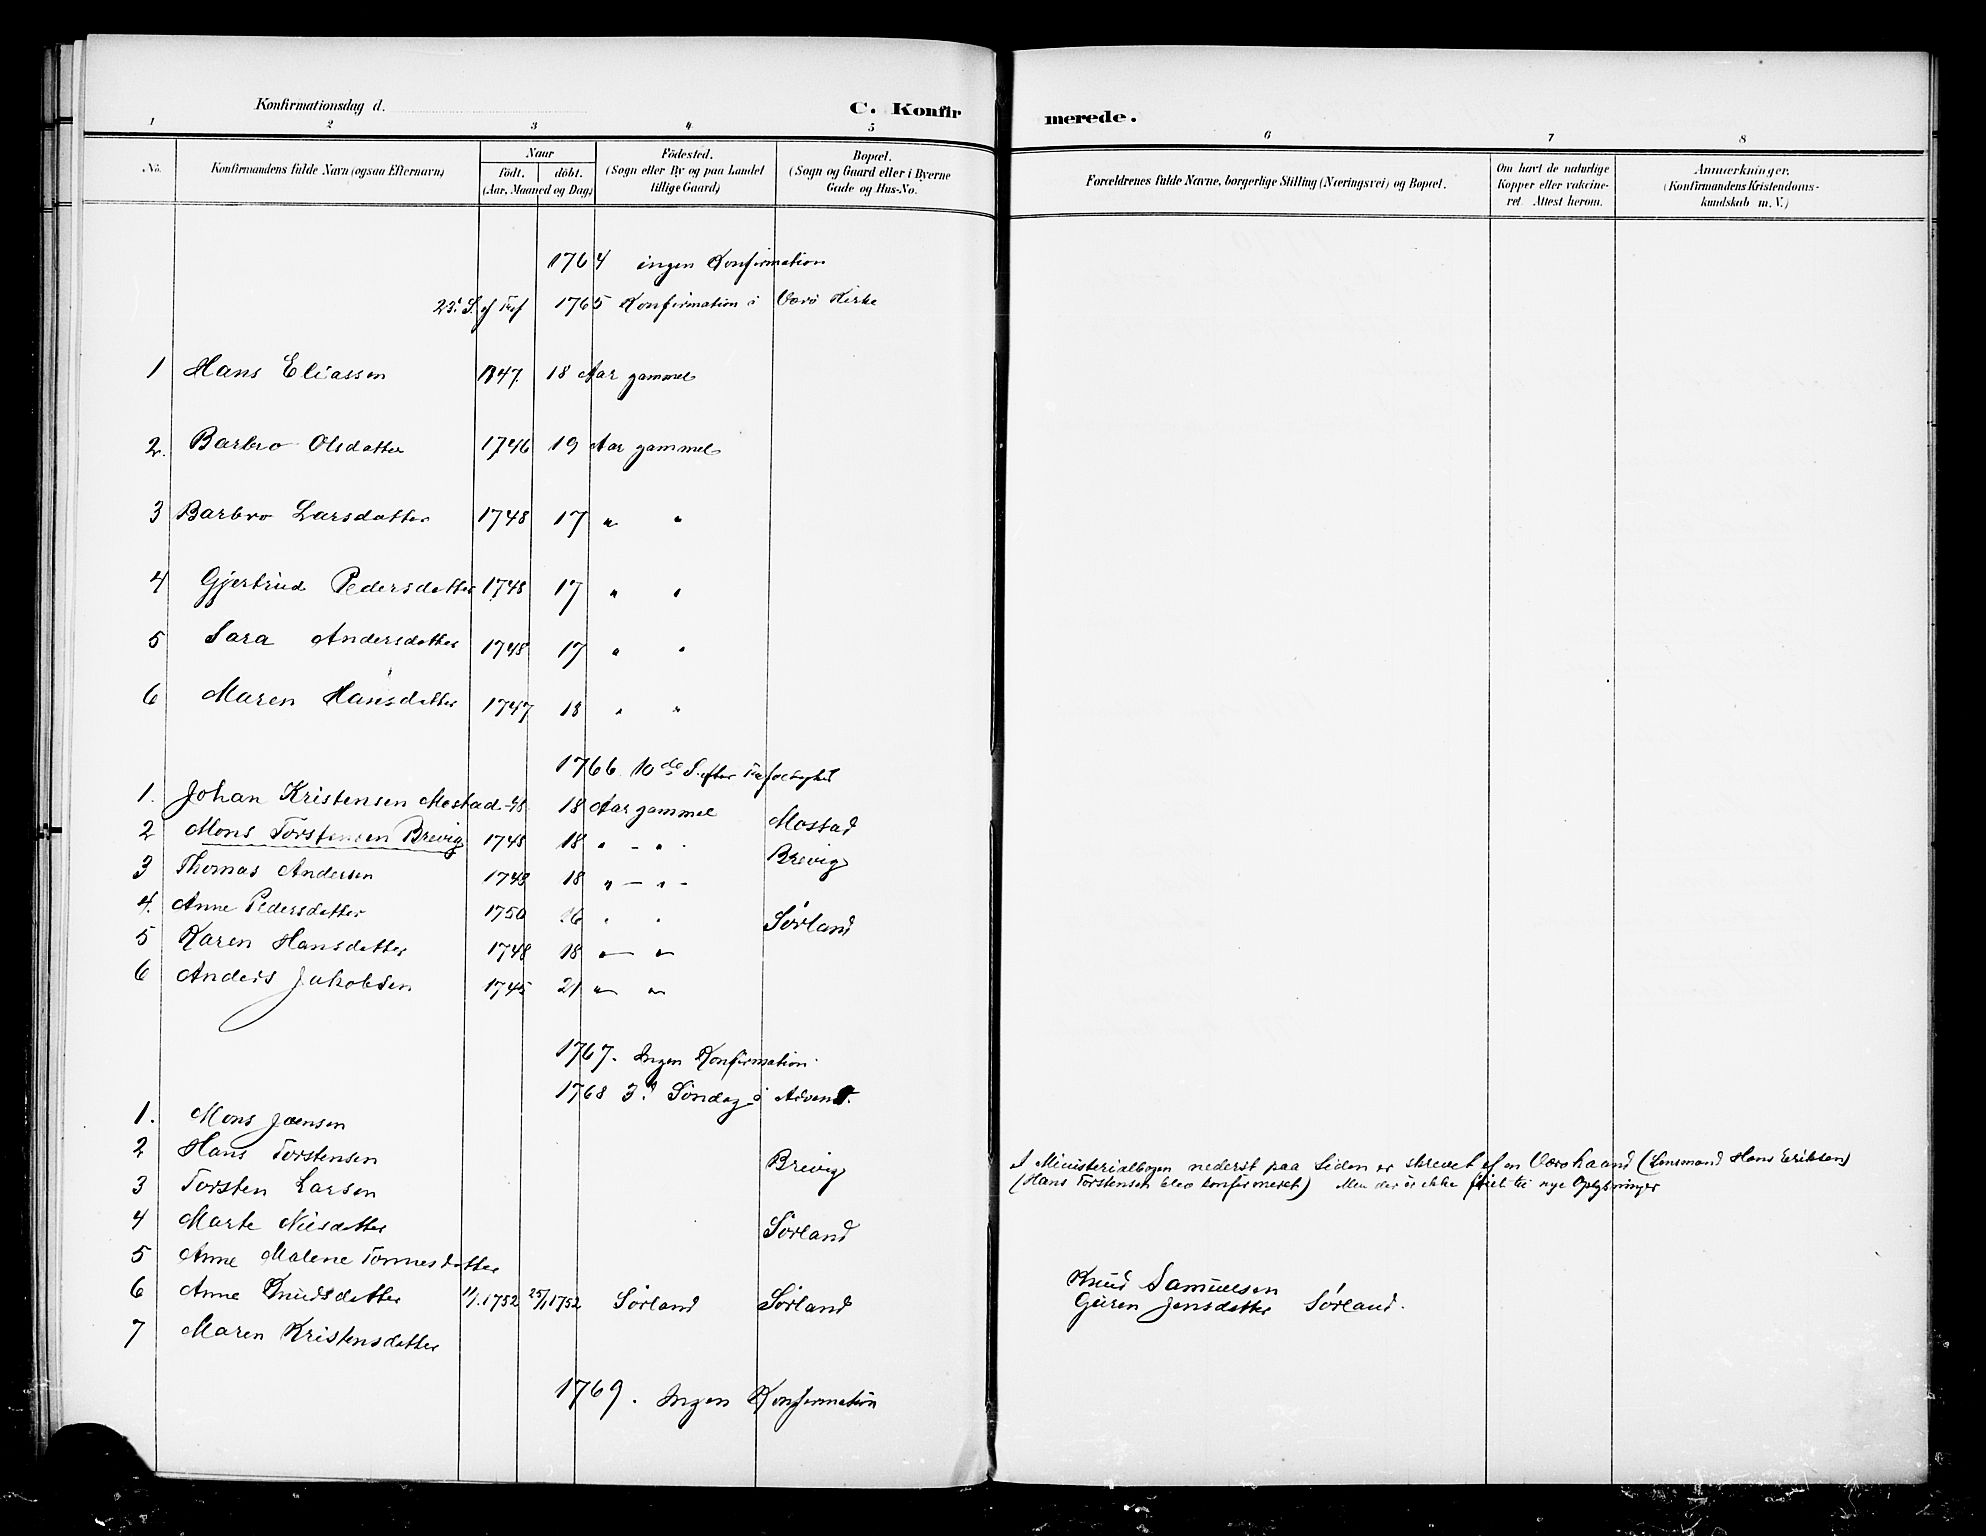 Konfirmationsdag d.
C. Konfir
merede.
1 2 3 4 5 6 7 8
No. Konfirmandens fulde Navn (ogsaa Efternavn)
Naar
födt. döbt.
(Aar, Maaned og Dag)
Födested.
(Sogn eller By og paa Landet
tillige Gaard)
Bopæl.
(Sogn og Gaard eller i Byerne
Gade og Hus-No.
Forældrenes fulde Navne, borgerlige Stilling (Næringsvei) og Bopæl.
Om havt de naturlige
Kopper eller vakcine-
ret. Attest herom.
Anmærkninger.
(Konfirmandens Kristendoms-
kundskab m. V.)
1764 ingen Konfirmation
23. S. ef Tref 1765 Konfirmation i Værö Kirke
1 Hans Eliassen 1747. 18 Aar gammel
2. Barbro Olsdatter 1746 19 Aar gammel
3 Barbro Larsdatter 1748 17 " "
4 Gjertrud Pedersdatter 1748 17 " "
5 Sara Andersdatter 1748 17 " "
6 Maren Hansdatter 1747 18 " "
1766 10de S. efter Trefoldighet
1. Johan Kristensen Mostad -48 18 Aar gammel Mostad
2 Mons Torstensen Brevig 1748 18 " - " - Brevig
3 Thomas Andersen 1748 18 " - " -
4. Anne Pedersdatter 1750 16 " " Sørland
5 Karen Hansdatter 1748 18 " - "
6 Anders Jakobsen 1745 21 " "
1767. Ingen Konfirmation.
1768 3d Søndag i Advent.
1. Mons Joensen
2 Hans Torstensen Brevig I Ministerialbogen nederst paa Siden er skrevet af en Værøhaand (Lensmand Hans Eriksen)
3 Torsten Larsen (Hans Torstensen blev konfirmeret) Men der er ikke föiet til nye Oplysninger
4 Marte Nilsdatter Sørland
5 Anne Malene Tønnesdatter
6 Anne Knudsdatter 11/1.1752 25/1 1752 Sørland Sørland Knud Samuelsen
Guren Jensdatter Sørland.
7 Maren Kristensdatter
1769. Ingen Konfirmation